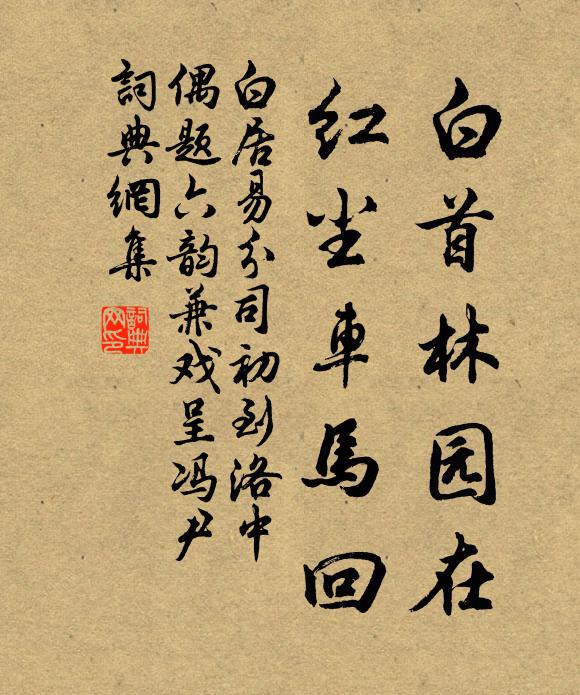 白首林园在
红尘車馬回
白居易分司初到洛中
偶题六韵兼戏呈冯尹
詞典網集
詞典
网印